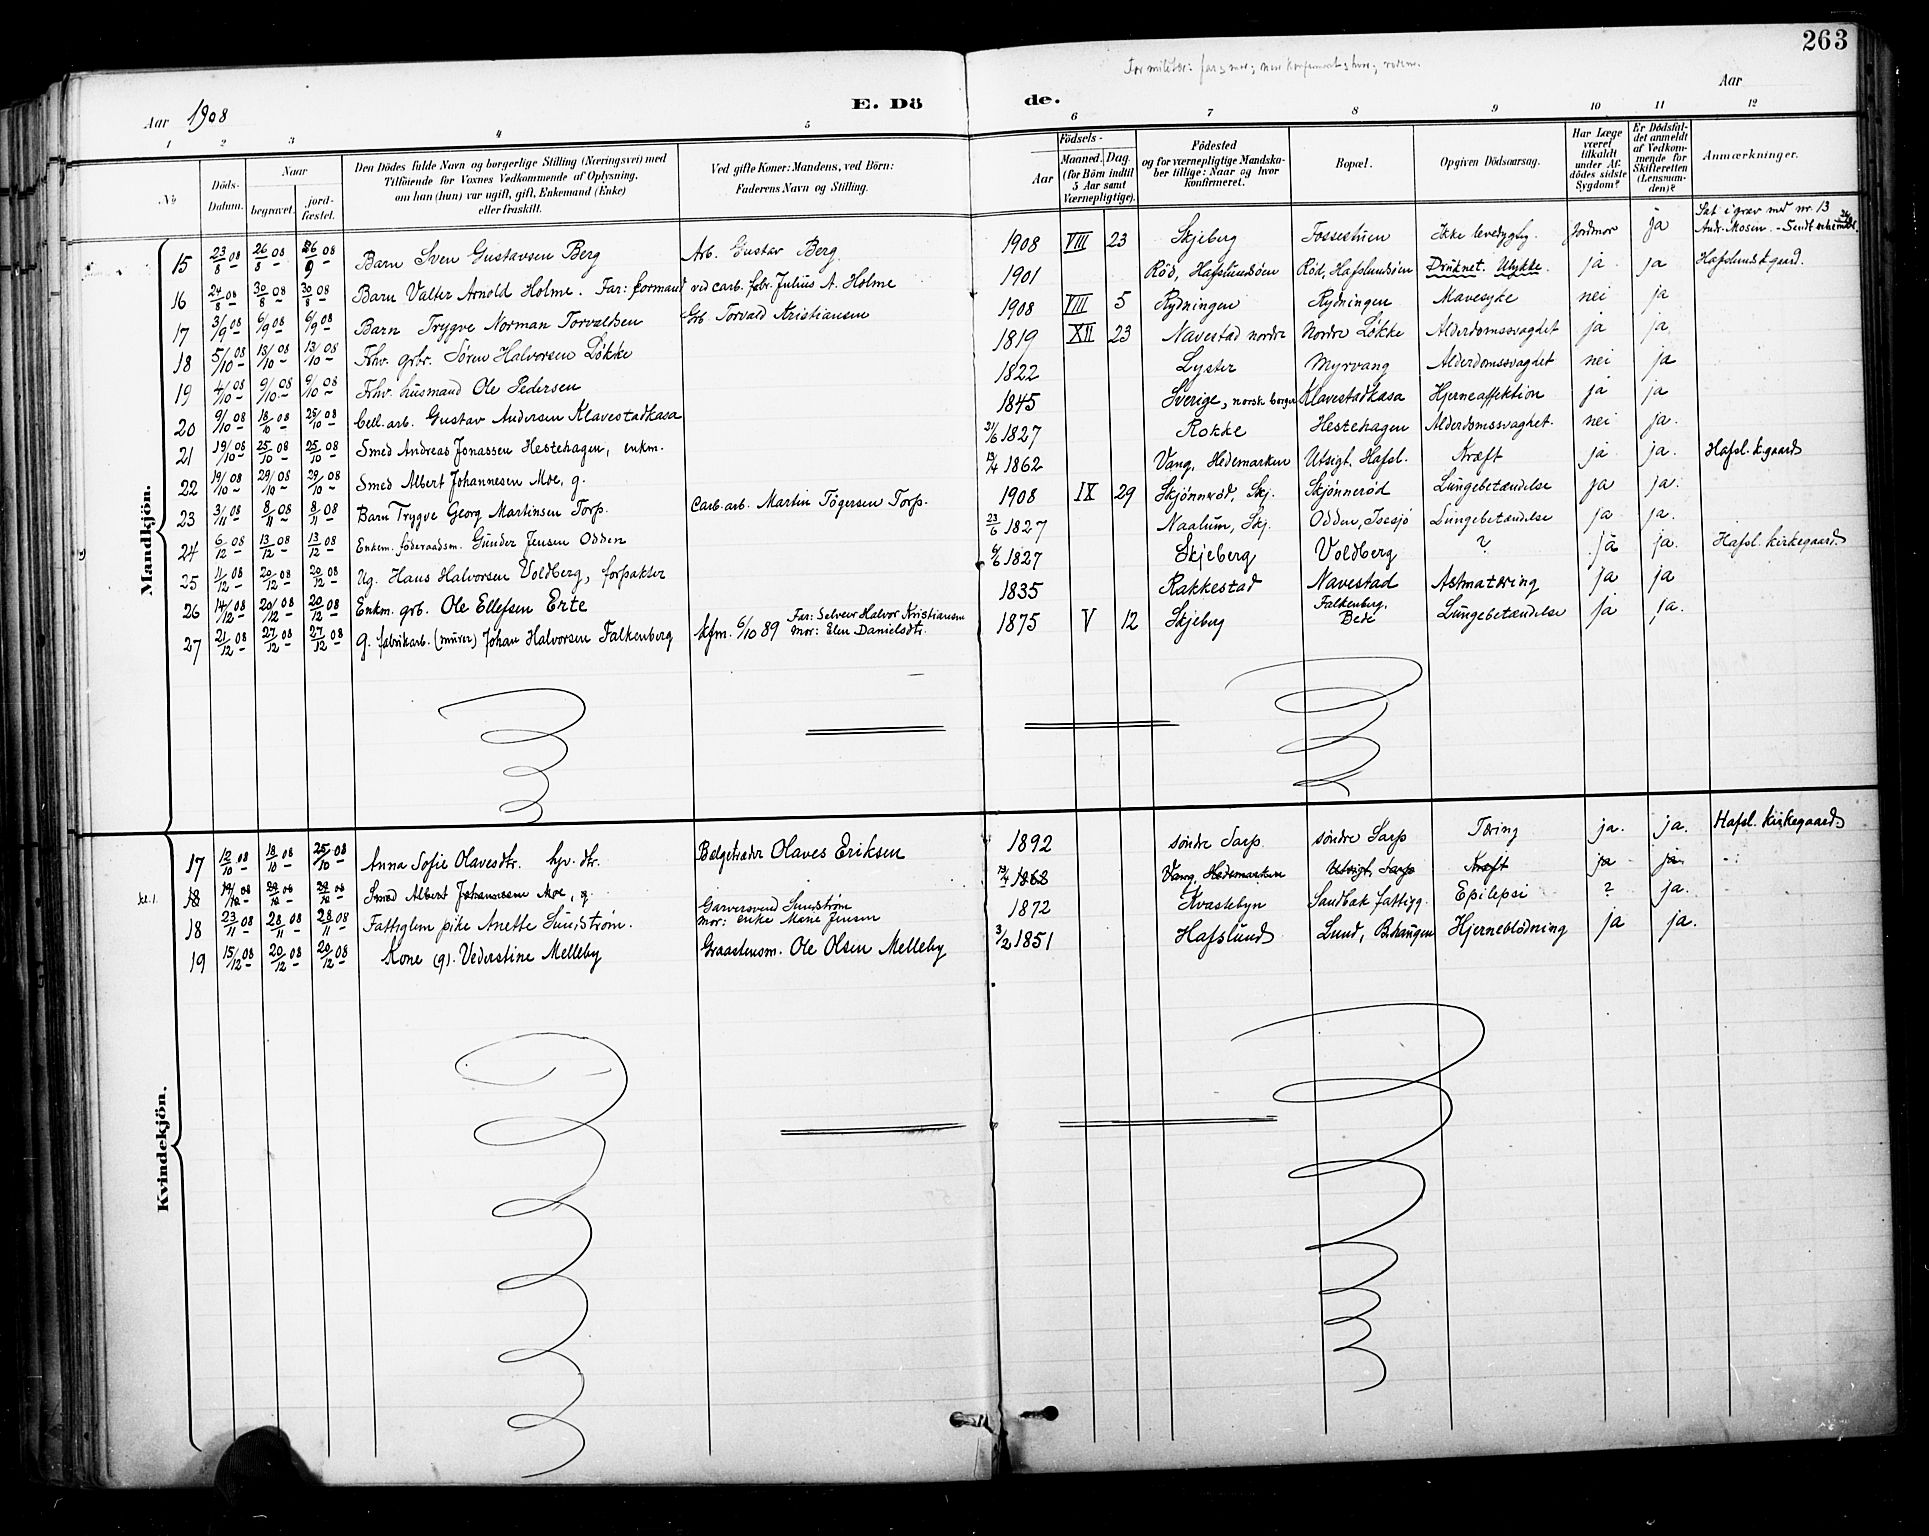 263
For militær: far, mor;
Aar 1908
E. Döde.
Aar
1 2 3 4 5 6 7 8 9 10 11 12
No
Döds-Datum.
Naar begravet. jord-fæstet.
Den Dödes fulde Navn og borgerlige Stilling (Næringsvei) med Tilföiende for Voxnes Vedkommende af Oplysning, om han (hun) var ugift, gift, Enkemand (Enke) eller fraskilt.
Ved gifte Koner: Mandens, ved Börn: Faderens Navn og Stilling.
Födsels- Aar Maaned. Dag. (for Börn indtil 5 Aar samt Værnepligtige).
Födested og for værnepligtige Mandskaber tillige: Naar og hvor konfirmeret.
Bopæl.
Opgiven Dödsaarsag.
Har Læge været tilkaldt under Afdödes sidste Sygdom?
Er Dödsfaldet anmeldt af Vedkommende for Skifteretten (Lensmanden)?
Anmærkninger.
Mandkjön.
15 23/8 08 26/8 08 Barn Sven Gustavsen Berg Arb. Gustav Berg 1908 VIII 23 Skjeberg Fossestuen Ikke levedygtig Jordmor ja Sat i grav med nr. 13 And. Mosen.
16 24/8 08 30/8 08 30/8 08 Barn Valter Arnold Holme. Far: formand ved carb. fabr. Julius A. Holme 1901 Röd, Hafslundsöen Röd, Hafslundsöen Druknet. Ulykke. ja ja Hafslund k.gaard.
17 3/9 08 6/9 08 6/9 08 Barn Trygve Norman Torvaldsen Torvald Kristiansen 1908 VIII 5 Rydningen Rydningen Mavesyke nei ja
18 5/10 08 13/10 08 13/10 08 Fhv. grbr. Sören Halvorsen Løkke 1819 XII 23 Navestad nordre Nordre Løkke Alderdomssvaghet ja ja
19 4/10 08 9/10 08 9/10 08 Fhv. husmand Ole Pedersen 1822 Lyster Myrvang Alderdomssvaghet nei ja
20 9/10 08 18/10 08 25/10 08 Cell. arb. Gustav Andersen Klavestadkasa 1845 Sverige, norsk borger Klavestadkasa Hjerneaffektion ja ja
21 19/10 08 25/10 08 25/10 08 Smed Andreas Jonassen Hestehagen, enkm. 1827 Rokke Hestehagen Alderdomssvaghet. nei ja.
22 19/10 08 29/10 08 29/10 08 Smed Albert Johannesen Moe, g. 13/4 1862 Vang, Hedemarken Utsigt, Hafsl. Kræft ja ja. Hafsl. k.gaard
23 3/11 08 8/11 08 8/11 08 Barn Trygve Georg Martinsen Torp. Carb. arb. Martin Tögersen Torp. 1908 IX 29 Skjönneröd, Skj. Skjönneröd Lungebetændelse ja ja.
24 6/12 08 13/12 08 13/12 08 Enkm. föderaadsm. Gunder Jensen Odden 23/6 1827 Naalum, Skj. Odden, Isesjö Lungebetændelse ja ja.
25 11/12 08 20/12 08 20/12 08 Ug. Hans Halvorsen Voldberg, forpakter 6/6 1827 Skjeberg Voldberg ? ja ja. Hafsl. kirkegaard.
26 14/12 08 20/12 08 20/12 08 Enkm. grb. Ole Ellefsen Erte 1835 Rakkestad Navestad Astmatæring ja ja
27 21/12 08 27/12 08 27/12 08 g. fabrikarb. (murer) Johan Halvorsen Falkenberg kfm. 6/10 89 Far: Selveier Halvor Kristiansen mor: Elen Danielsdtr. 1875 V 12 Skjeberg Falkenberg, Bede Lungebetændelse ja ja.
Kvindekjön.
17 12/10 08 18/10 08 25/10 08 Anna Sofie Olavesdtr. hjv. dtr. Bølgetræder Olaves Eriksen 1892 søndre Sarp søndre Sarp Tæring ja. ja. Hafsl. kirkegaard
18 19/10 08 29/10 08 29/10 08 Smed Albert Johannesen Moe, g. 13/4 1862 Vang, Hedemarken Utsigt, Sarp Kræft ja ja
18 23/11 08 28/11 08 28/11 08 Fattiglem pike Anette Sundström. Garversvend Sundström mor: enke Marie Jensen 1872 Kvastebyn Sandbak fattigg. Epilepsi ? ja.
19 15/12 08 20/12 08 20/12 08 Kone (g). Vederstine Melleby Ole Olsen Melleby 3/2 1851 Hafslund Lund, B.haugen Hjerneblödning ja ja.